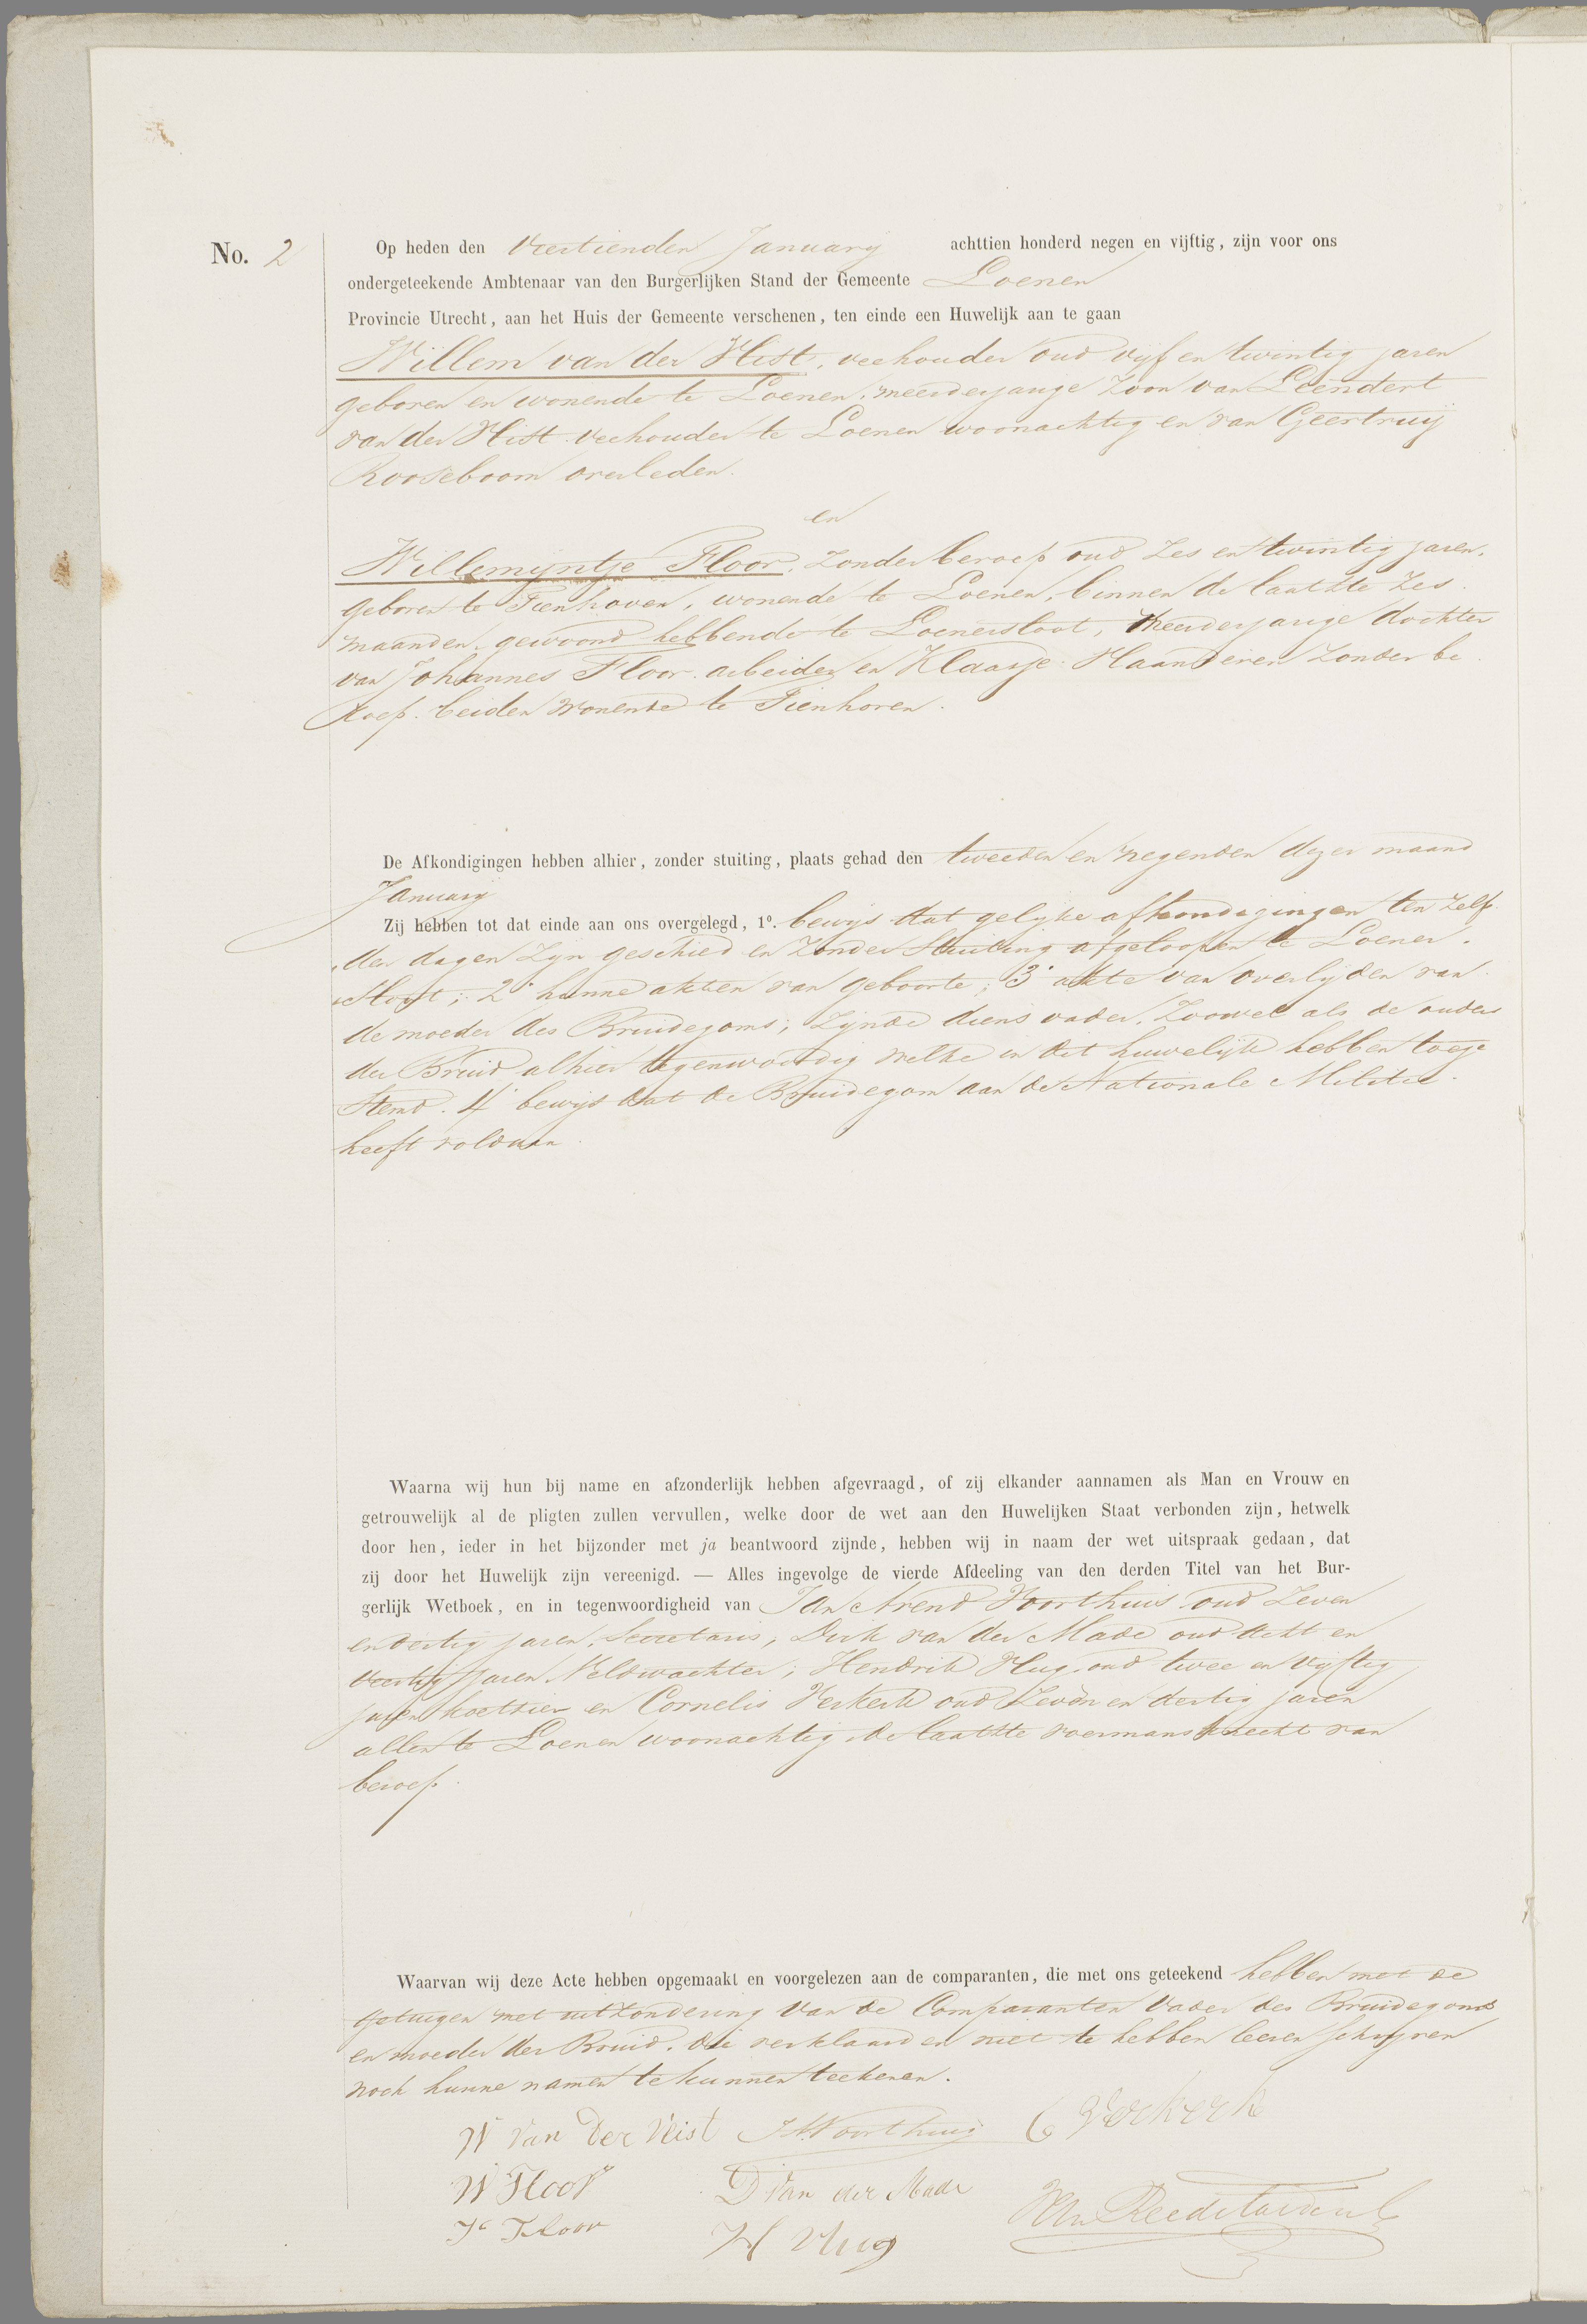 No. 2
Op heden den Veertienden January achttien honderd negen en vijftig, zijn voor ons
ondergeteekende Ambtenaar van den Burgerlijken Stand der Gemeente Loenen
Provincie Utrecht, aan het Huis der Gemeente verschenen, ten einde een Huwelijk aan te gaan
Willem van der Vlist, veehouder oud vijf en twintig jaren
geboren en wonende te Loenen, meerderjarige zoon van Leendert
van der Vlist veehouder te Loenen woonachtig en van Geertruij
Rooseboom overleden.
en
Willemijntje Floor, zonder beroep oud zes en twintig jaren,
geboren te Tienhoven, wonende te Loenen, binnen de laatste zes
maanden gewoond hebbende te Loenersloot, meerderjarige dochter
van Johannes Floor arbeider en Klaasje Vlaanderen zonder be
roep beiden wonende te Tienhoven.
De Afkondigingen hebben alhier, zonder stuiting, plaats gehad den tweeden en negenden dezer maand
January
Zij hebben tot dat einde aan ons overgelegd, 1º. bewijs dat gelijke afkondigingen ten zelf
den dagen zijn geschied en zonder stuiting afgeloopen te Loener
sloot; 2º hunne akten van geboorte; 3º akte van overlijden van
de moeder des Bruidegoms; zijnde diens vader, zoowel als de ouders
der Bruid alhier tegenwoordig welke in dit huwelijk hebben toege
stemd. 4º bewijs dat de Bruidegom aan de Nationale Militie
heeft voldaan
Waarna wij hun bij name en afzonderlijk hebben afgevraagd, of zij elkander aannamen als Man en Vrouw en
getrouwelijk al de pligten zullen vervullen, welke door de wet aan den Huwelijken Staat verbonden zijn, hetwelk
door hen, ieder in het bijzonder met ja beantwoord zijnde, hebben wij in naam der wet uitspraak gedaan, dat
zij door het Huwelijk zijn vereenigd. — Alles ingevolge de vierde Afdeeling van den derden Titel van het Bur-
gerlijk Wetboek, en in tegenwoordigheid van Jan Arend Voorthuis oud zeven
en dertig jaren, Secretaris, Dirk van der Made oud acht en
veertig jaren Veldwachter; Hendrik Vlug oud twee en vijftig
jaren koetsier en Cornelis Verkerk oud zeven en dertig jaren
allen te Loenen woonachtig de laatste voermansknecht van
beroep.
Waarvan wij deze Acte hebben opgemaakt en voorgelezen aan de comparanten, die met ons geteekend hebben met de
getuigen met uitzondering van de Comparanten vader des Bruidegoms
en moeder der Bruid, die verklaarden niet te hebben leeren schrijven
noch hunne namen te kunnen teekenen.
W van der Vlist JAVoorthuis C Verkerk
W Floor D van der Made
Js Floor H Vlug